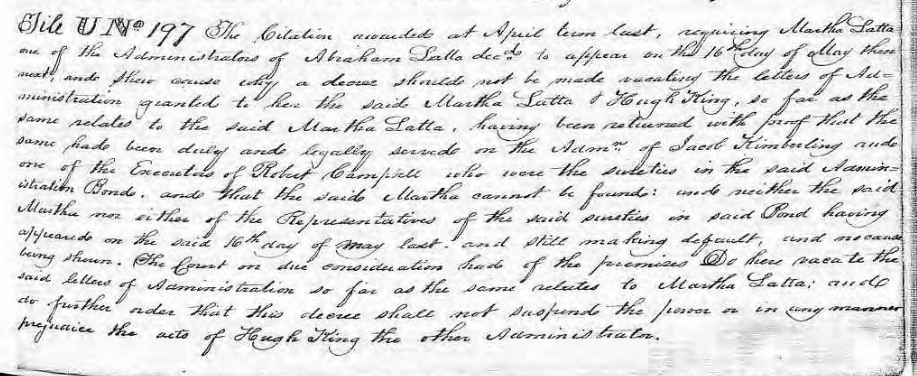 File U No 197 The Citation awarded at April term last, requiring Martha Latta
one of the Administrators of Abraham Latta decd. to appear on the 16th day of May then
next, and shew cause why a decree should not be made vacating the letters of Ad=
ministration granted to her the said Martha Latta & Hugh King, so far as the
same relates to the said Martha Latta, having been returned with proof that the
same had been duly and legally served on the Admr. of Jacob Kimberling and
one of the Executors of Robert Campbell who were the sureties in the said Admin=
istration Bond. and that the said Martha cannot be found: and neither the said
Martha nor either of the Representatives of the said sureties in said Bond having
appeared on the said 16th day of May last. and still making default, and no cause
being shown. The Court on due consideration had of the premises Do here vacate the
said letters of Administration so far as the same relates to Martha Latta; and
do further order that this decree shall not suspend the power or in any manner
prejudice the acts of Hugh King the other Administrator.